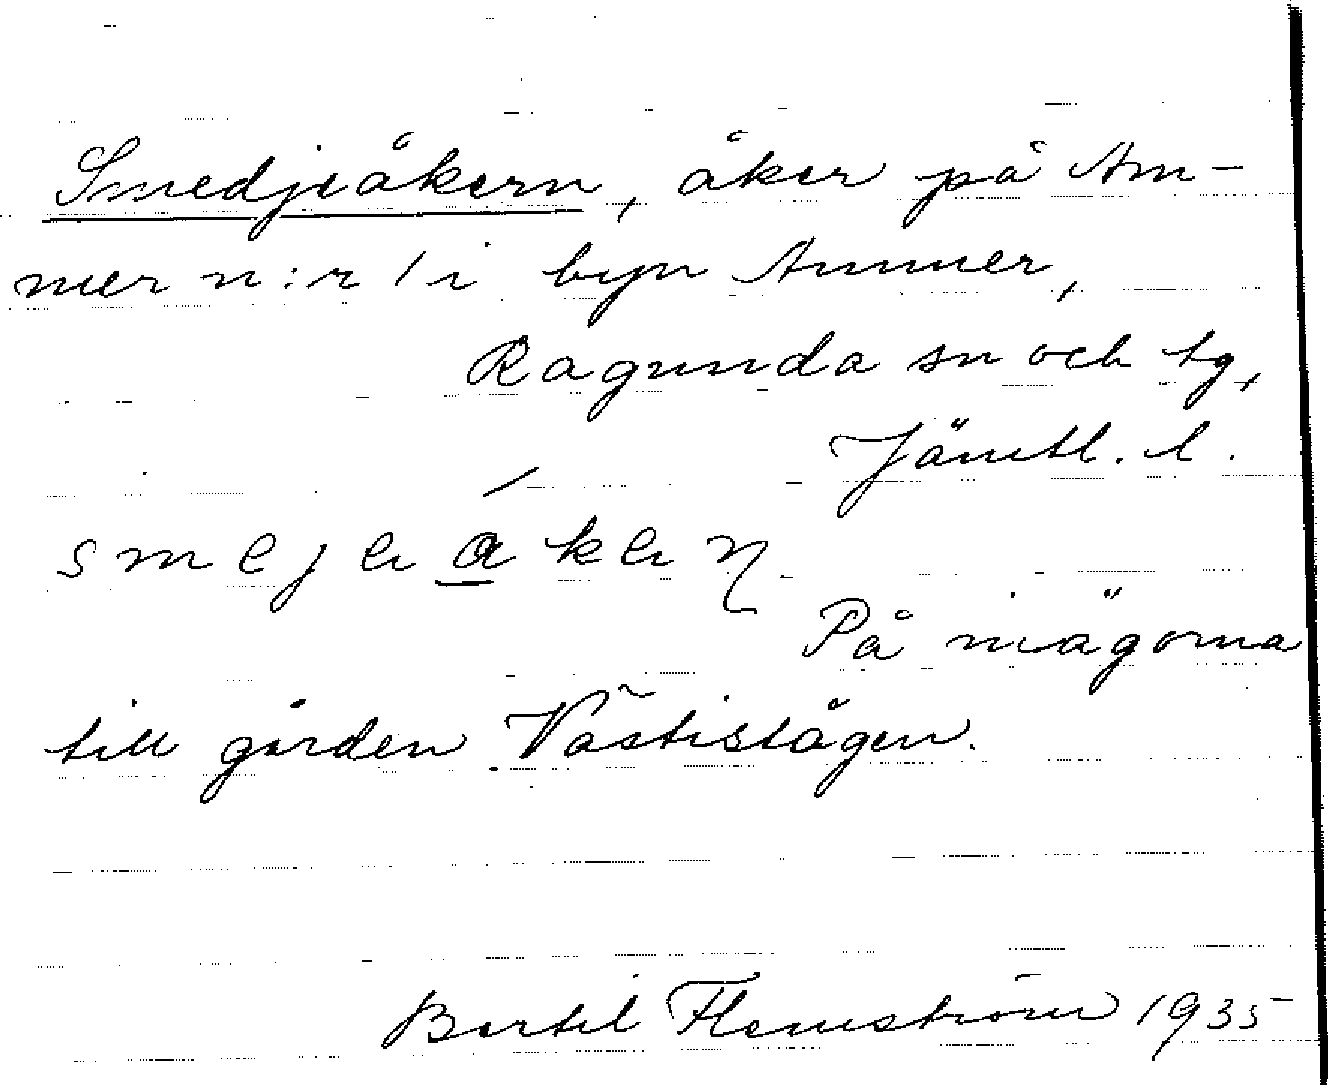 Smedjeåkern, åker på Am-
mer n:r 1 i byn Ammer,
Ragunda sn och tg,
Jämtl. l.
På inägorna
till gården Västistågen.
Bertil Flemström 1935